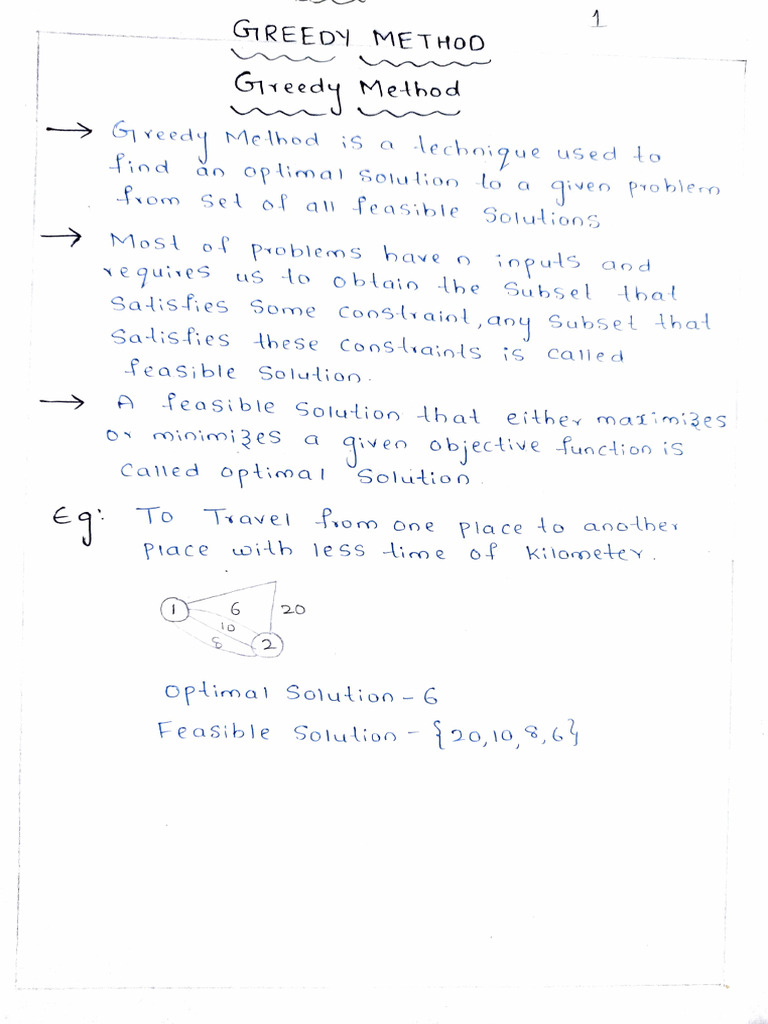 1
GREEDY METHOD
Greedy Method
→ Greedy Method is a technique used to
find an optimal solution to a given problem
from set of all feasible solutions
→ Most of problems have n inputs and
requires us to obtain the subset that
satisfies some constraint, any subset that
satisfies these constraints is called
feasible solution.
→ A feasible solution that either maximizes
or minimizes a given objective function is
called optimal solution.
Eg: To Travel from one place to another
place with less time of kilometer.
1 6 20
10
8 2
Optimal Solution - 6
Feasible Solution - {20,10,8,6}